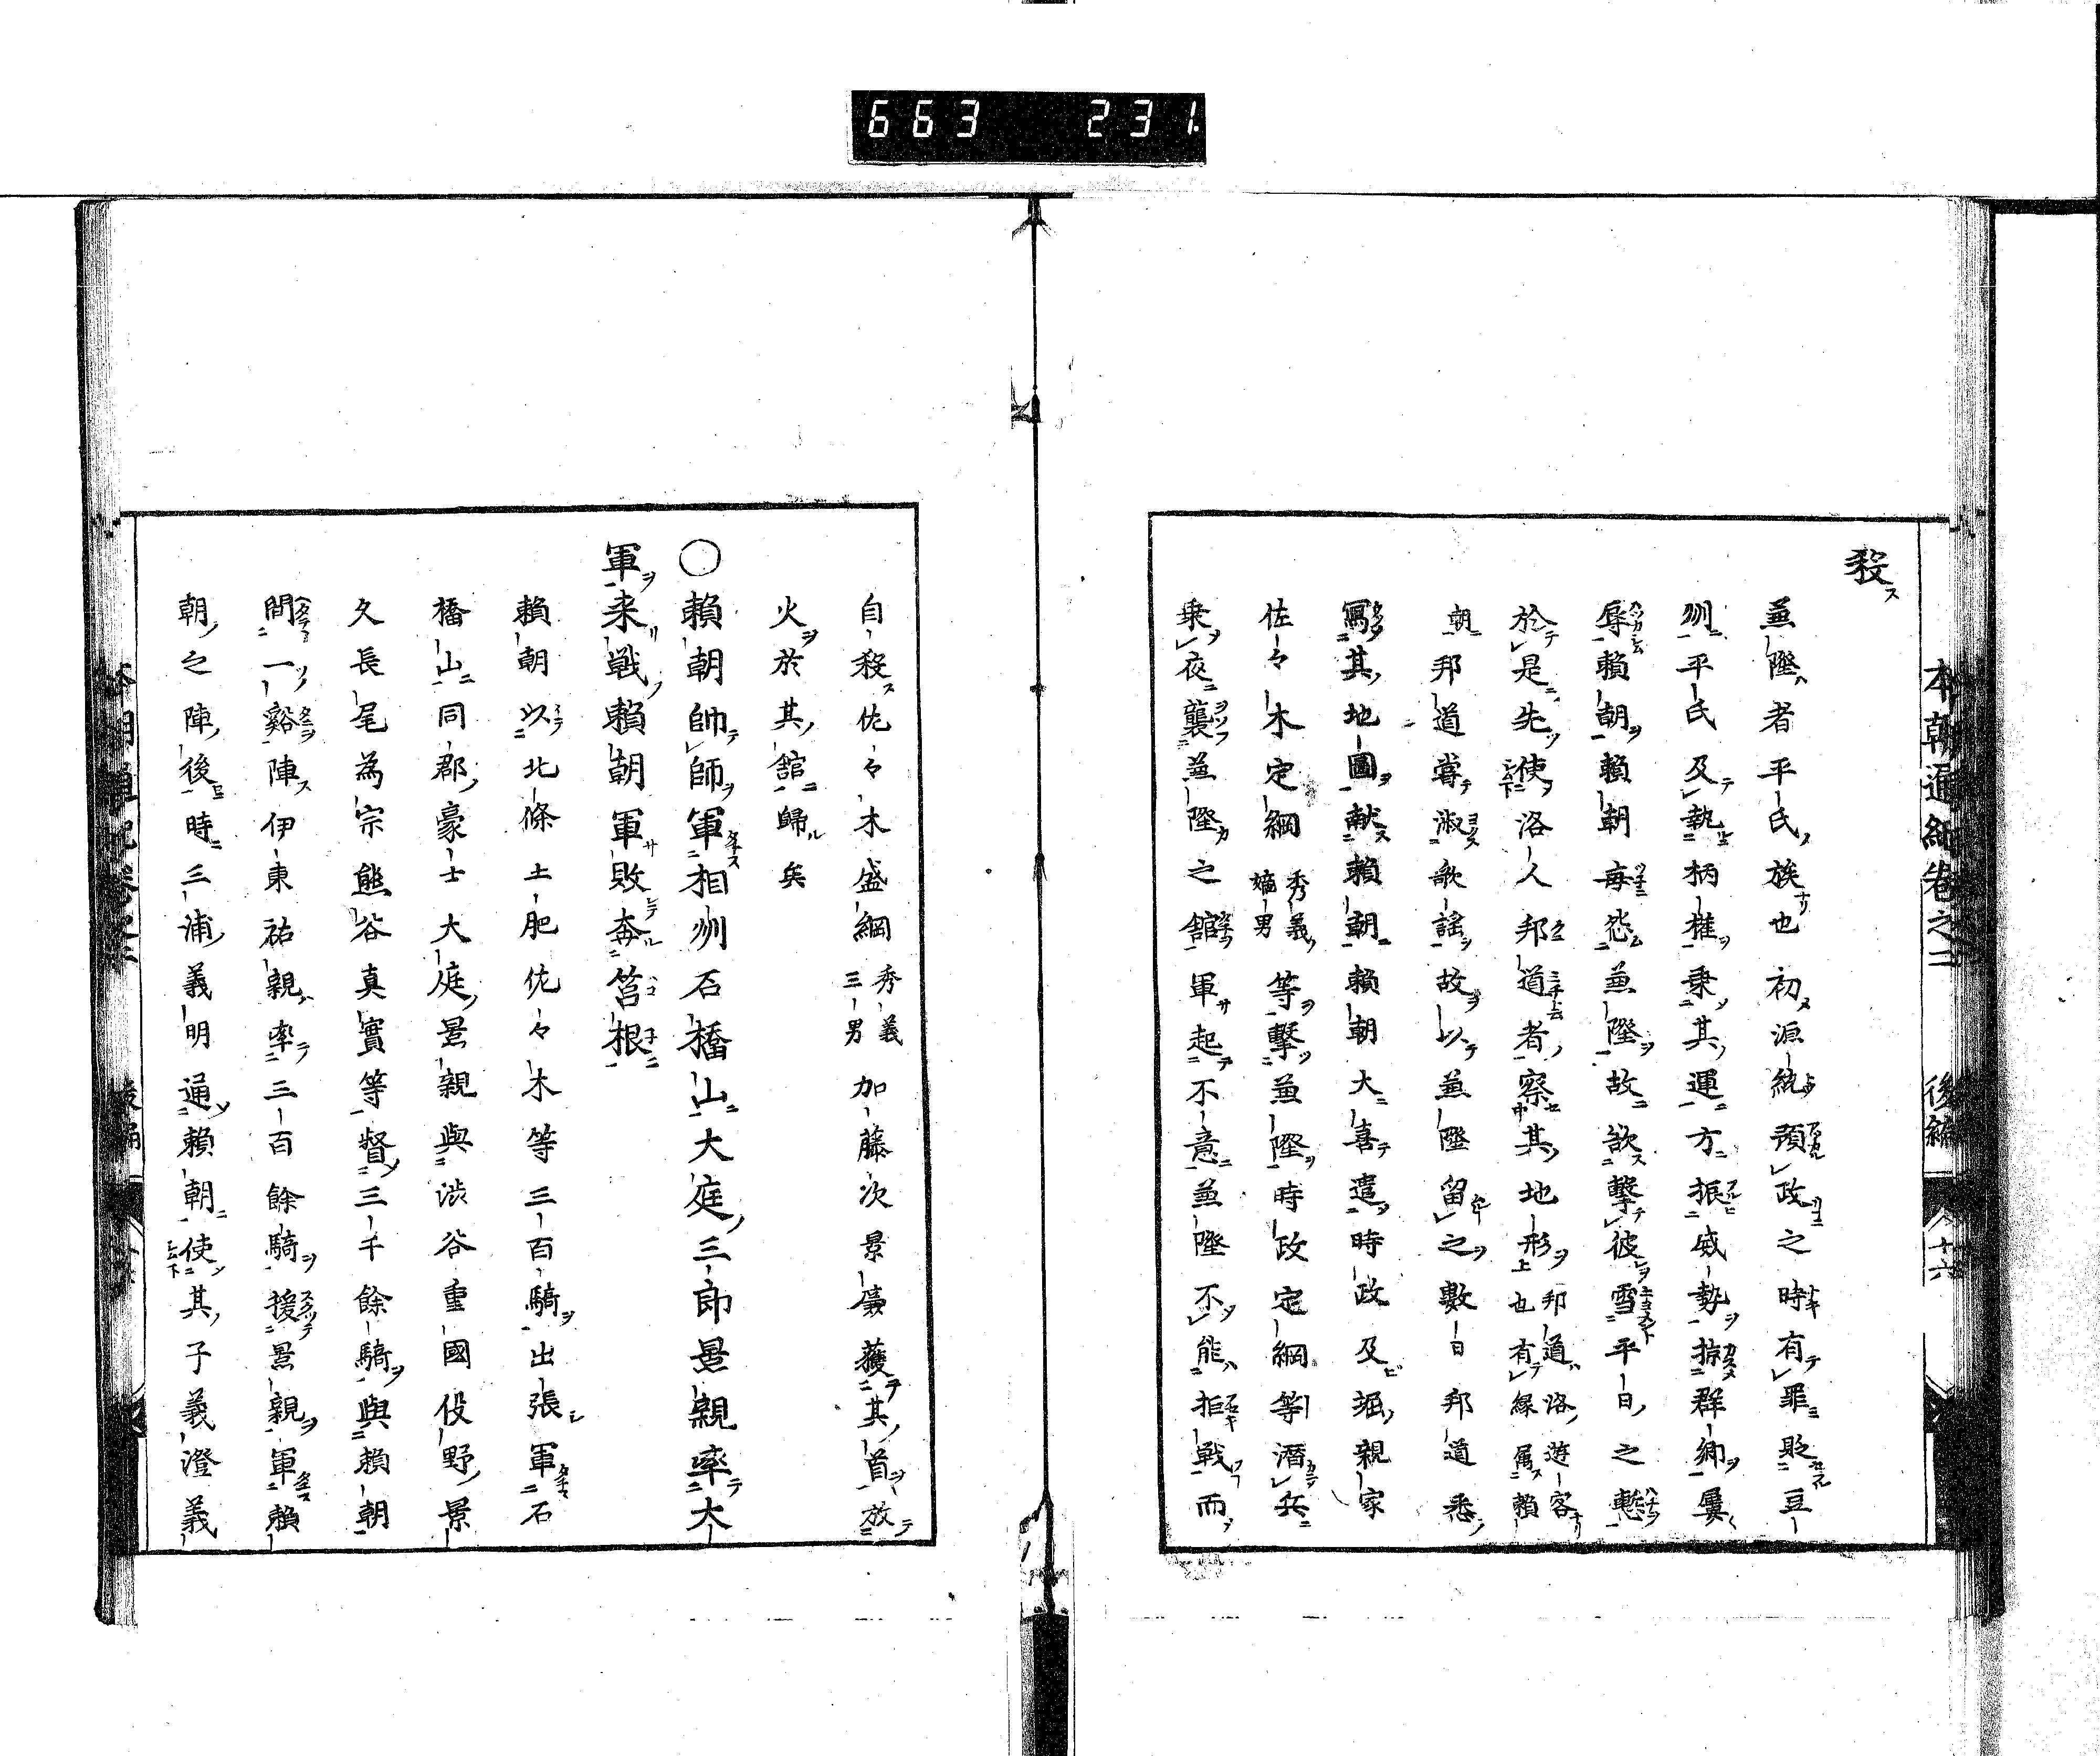 663 231
本朝通紀卷之二 後編 十六
殺ス
兼隆者平氏族也初源統預政之時有罪貶豆
州平氏及執柄權乗其運方振威勢掠群鄉屢
辱賴朝賴朝每怨兼隆故欲擊彼雪平日之慙
於是先使洛人邦道者察其地形也邦道洛遊客有緣属賴
朝邦道嘗淑歌謠故以兼隆留之數日邦道悉
寫其地圖献賴朝賴朝大喜遣時政及堀親家
佐々木定綱秀義嫡男等擊兼隆時政定綱等潛兵
乗夜襲兼隆之館軍起不意兼隆不能拒戰而
自殺佐々木盛綱秀義三男加藤次景廉獲其首放
火於其館歸矣
○賴朝帥師軍相州石橋山大庭三郎景親率大
軍来戦賴朝軍敗奔筥根
賴朝以北條土肥佐々木等三百騎出張軍石
橋山同郡豪士大庭景親與渋谷重國俣野景
久長尾為宗熊谷真實等督三千餘騎與賴朝
間一谿陣伊東祐親率三百餘騎援景親軍賴
朝之陣後時三浦義明通賴朝使其子義澄義